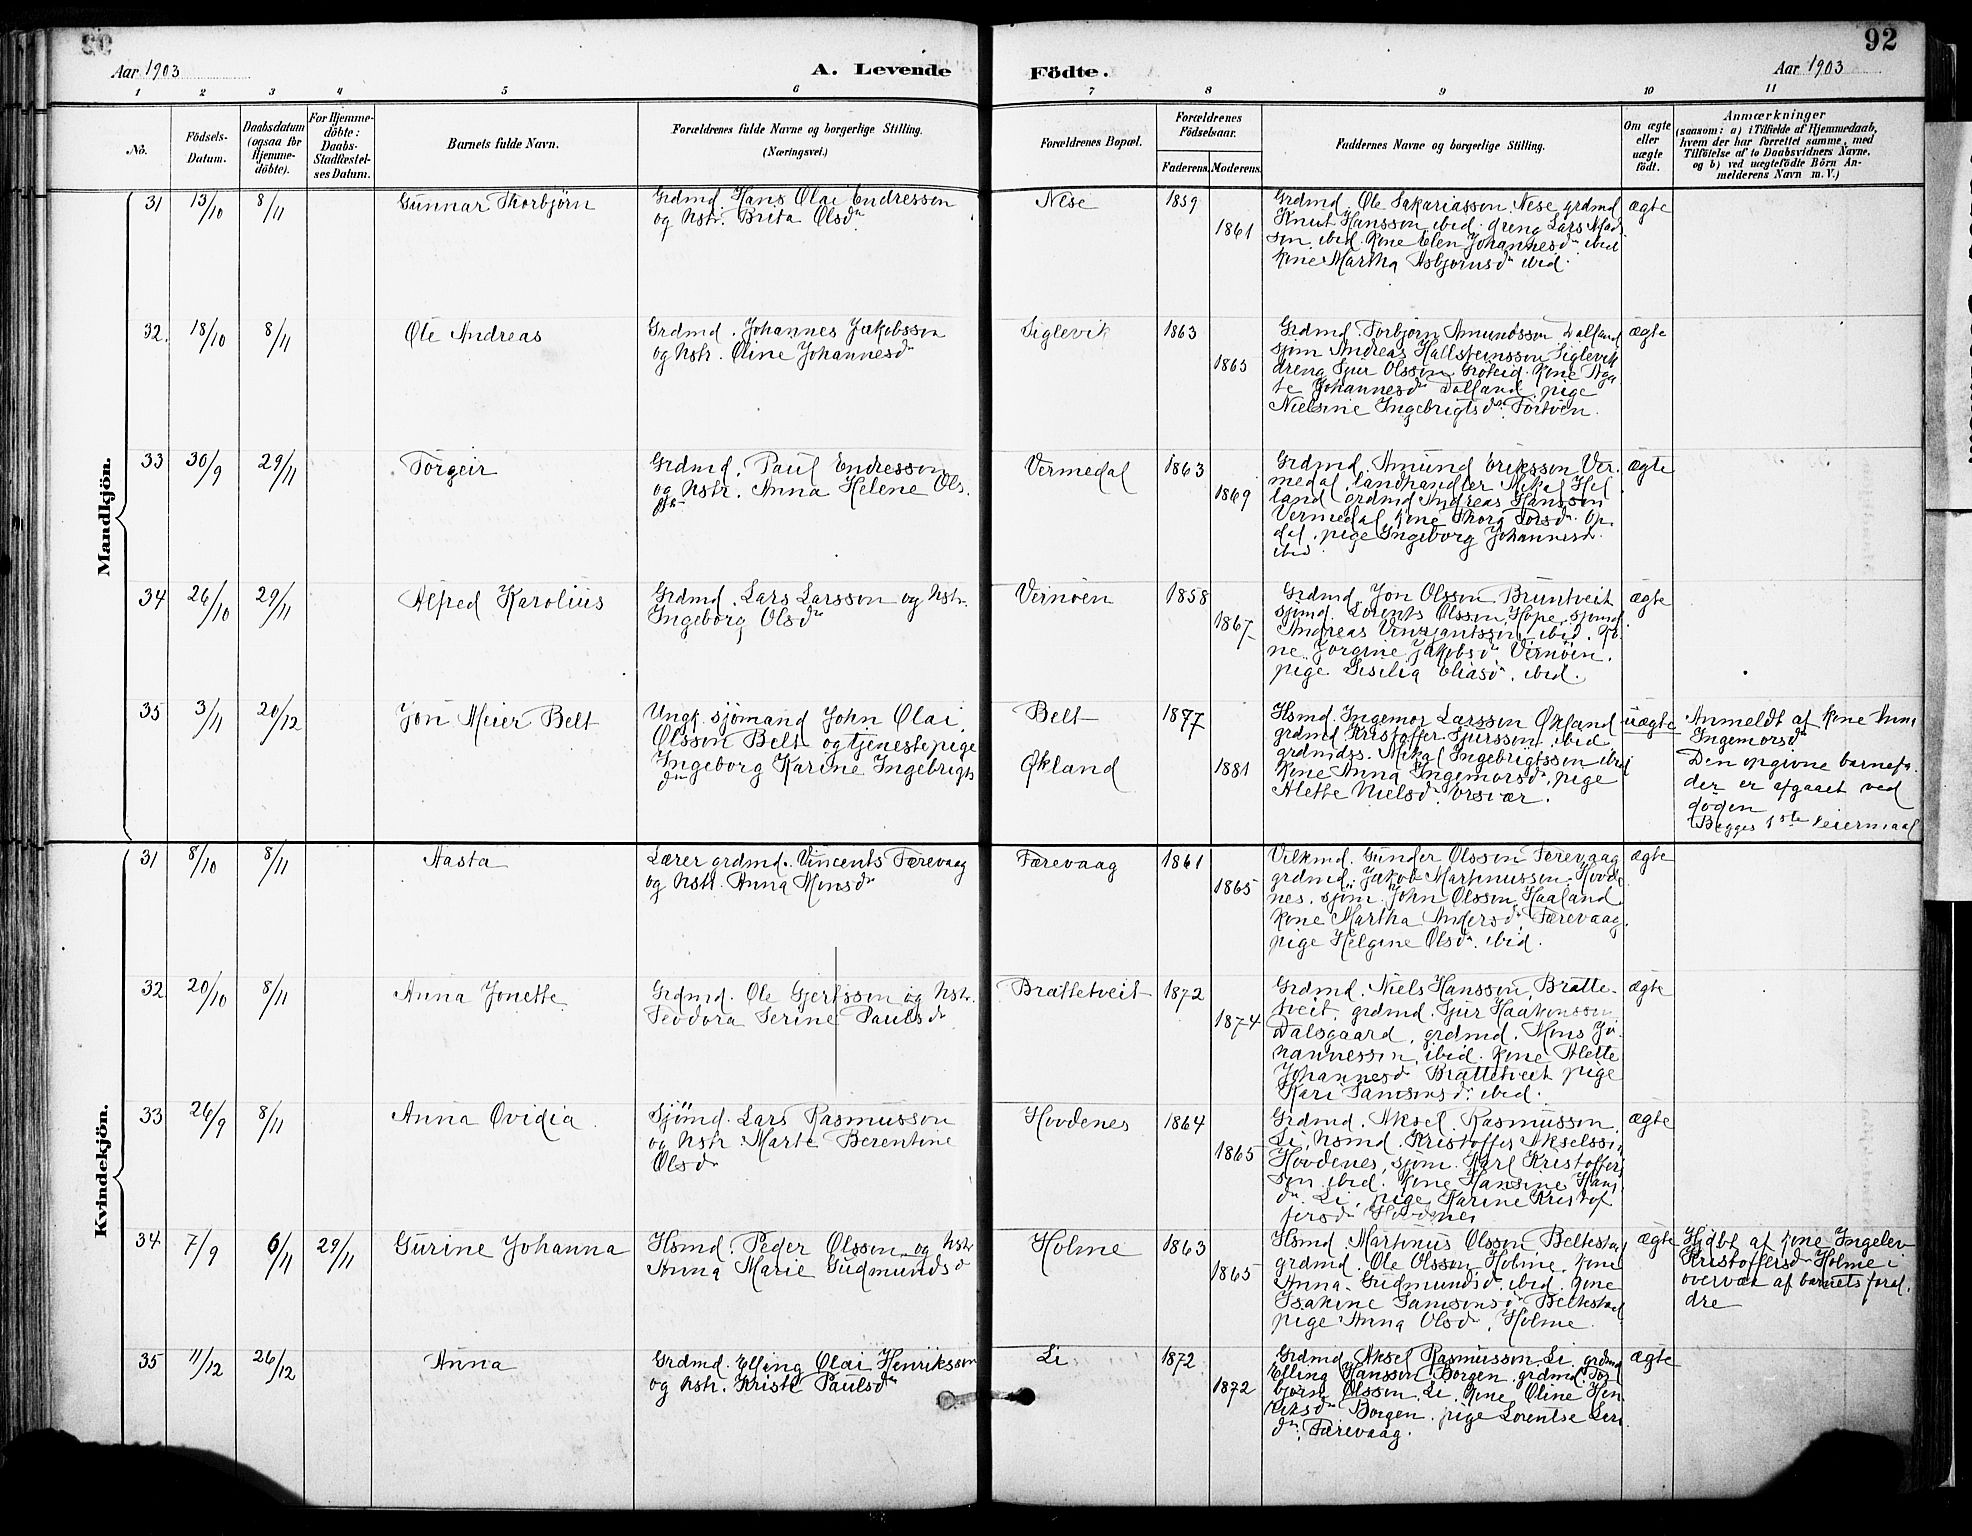 92
Aar 1903
A. Levende Födte.
Aar 1903
1 2 3 4 5 6 7 8 9 10 11
No.
Födsels-Datum.
Daabsdatum (ogsaa for Hjemme-döbte).
For Hjemme-döbte: Daabs-Stadfæstel-ses Datum.
Barnets fulde Navn.
Forældrenes fulde Navne og borgerlige Stilling. (Næringsvei.)
Forældrenes Bopæl.
Forældrenes Födselsaar.
Faderens. Moderens.
Faddernes Navne og borgerlige Stilling.
Om ægte eller uægte födt.
Anmærkninger
(saasom: a) i Tilfælde af Hjemmedaab, hvem der har forrettet samme, med Tilföielse af to Daabsvidners Navne, og b) ved uægtefödte Börn An-melderens Navn m. V.)
Mandkjön.
31 13/10 8/11 Gunnar Thorbjørn
Grdmd. Hans Olai Endresson
og hstr. Brita Olsdr
Nese 1859 1861
Grdmd. Ole Sakariasson Nese grdmd
Knut Hansson ibid. dreng Lars
son ibid. kone Elen Johannesdr ibid
kone Martha Asbjørnsdr ibid.
ægte
32. 18/10 8/11 Ole Andreas
Grdmd. Johannes Jakobsson
og hstr. Oline Johannesdr
Siglevik 1863 1865
Grdmd. Torbjørn Amundsson Dalland
sjøm Andreas Hallsteinsson Siglevik
dreng Sjur Olsson kone Aga
te Johannesdr Dalland, pige
Nielsine Ingebrigtsdr
ægte
33 30/9 29/11 Torgeir
Grdmd. Paul Endresson
og hstr. Anna Helene Ols.
dr
Vermedal 1863 1869
Grdmd. Amund Eriksson Ver.
medal, landhandler Mikal Hel
land grdmd Andreas Hansson
Vermedal kone Thora Op
dal, pige Ingeborg Johannesdr
ibid
ægte
34 26/10 29/11 Alfred Karolius
Grdmd. Lars Larsson og hstr.
Ingeborg Olsdr
Vernøen 1858 1867
Grdmd. Jon Olsson Bruntveit
sjømd. Lorents Olsson Hope, sjømd
Andreas ibid. Ko
ne Jorgine Jakobsdr Vernøen.
pige Sisilia Eliasdr. ibid.
ægte
35 3/11 20/12 Jon Meier Belt
Ungk. sjømand John Olai
Olsson Belt og tjenestepige
Ingeborg Karine Ingebrigts
dr
Belt
Økland
1877 1881
Hsmd. Ingemor Larsson Økland
grdmd Kristoffer Sjursson ibid
grdmdss. Mikal Ingebrigtsson ibid
kone Anna Ingemorsdr, pige
Alette Nielsdr.
uægte
Anmeldt af kone Anna
Ingemorsdr
Den opgivne barnefa.
der er afgaaet ved
døden
Begges 1ste leiermaal
Kvindekjön.
31 8/10 8/11 Aasta
Lærer grdmd. Vincents Færevaag
og hstr. Anna Monsdr
Færevaag 1861 1865
Gunder Olsson Færevaag
grdmd. Jakob Martinusson Hovde
nes. sjøm John Olsson Haaland
kone Martha Andersdr Færevaag
pige Helgine Olsdr. ibid.
ægte
32 20/10 8/11 Anna Jonette
Grdmd. Ole Gjertsson og hstr.
Teodora Serine Paulsdr
Brattetveit 1872 1874
Grdmd. Niels Hansson Bratte-
tveit, grdmd. Sjur Haakonsson
Dalsgaard, grdmd. Mons Jo
hannesson ibid. kone Alette
Johannesdr Brattetveit pige
Kari Samsonsdr. ibid.
ægte
33 26/9 8/11 Anna Ovidia
Sjømd. Lars Rasmusson
og hstr. Marte Berentine
Olsdr
Hovdenes 1864 1865
Grdmd. Aksel Rasmusson
Li, hsmd. Kristoffer Akselsson
Hovdenes, sjøm. Karl Kristoffers
son ibid. kone Hansine Hans
dr. Li, pige Karine Kristof
fersdr Hovdenes
ægte
34 7/9 6/11 29/11 Gurine Johanna
Hsmd. Peder Olsson og hstr
Anna Marie Gudmundsdr
Holme 1863 1865
Hsmd. Martinus Olsson Beltestad
grdmd. Ole Olsson Holme. kone
Anna Gudmundsdr ibid. kone
Isakine Samsonsdr Beltestad
pige Anna Olsdr, Holme
ægte
Hjdbt af kone Ingelev
Kristoffersdr Holme i
overvær af barnets foræl.
dre
35 11/12 26/12 Anna
Grdmd. Elling Olai Henriksson
og hstr. Kristi Paulsdr
Li 1872 1872
Grdmd. Aksel Rasmusson Li, grdmd
Elling Hansson Borgen, grdmd. Tor
bjørn Olsson Li, kone Oline Hen
riksdr Borgen, pige Lorentse Lars
dr, Færevaag.
ægte